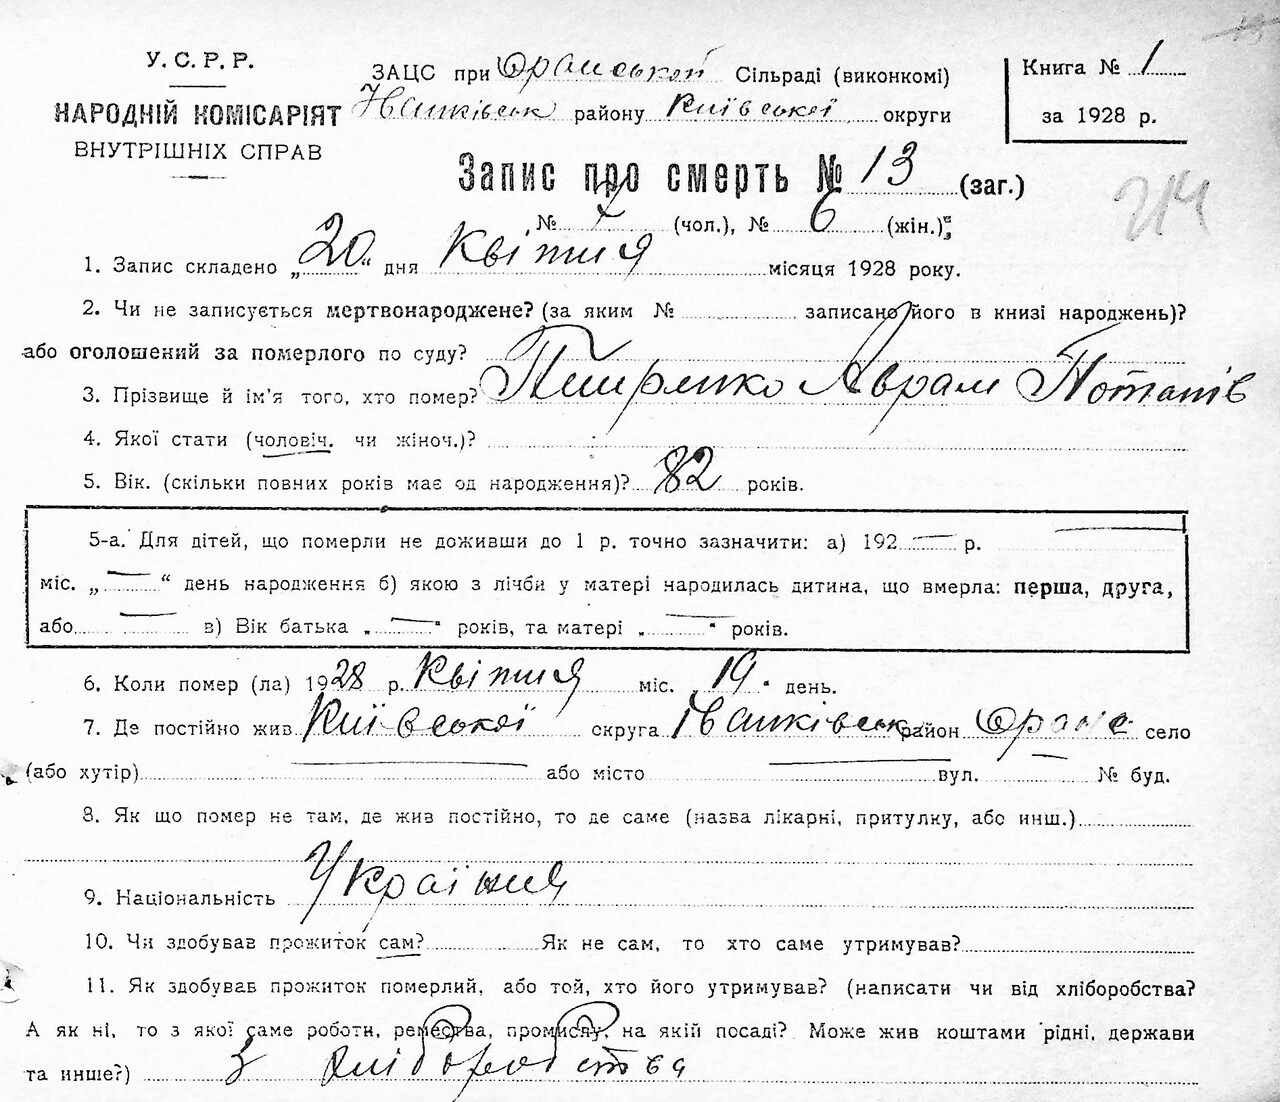 У. С. Р. Р.
НАРОДНІЙ КОМІСАРІЯТ
ВНУТРІШНІХ СПРАВ
ЗАЦС при Оранській Сільраді (виконкомі)
Іванківськ району Київської округи
Книга № 1
за 1928 р.
Запис про смерть № 13 (заг.)
№ 7 (чол.), № 6 (жін.);
214
1. Запис складено „20“ дня Квітня місяця 1928 року.
2. Чи не записується мертвонароджене? (за яким № записано його в книзі народжень)?
або оголошений за померлого по суду?
3. Прізвище й ім'я того, хто помер? Аврам Потапів
4. Якої стати (чоловіч. чи жіноч.)?
5. Вік. (скільки повних років має од народження)? 82 років.
5-а. Для дітей, що померли не доживши до 1 р. точно зазначити: а) 192 — р.
міс. „—“ день народження б) якою з лічби у матері народилась дитина, що вмерла: перша, друга,
або — в) Вік батька „—“ років, та матері „—“ років.
6. Коли помер (ла) 1928 р. Квітня міс. 19 день.
7. Де постійно жив Київської округа Іванківськ район Оране село
(або хутір) — або місто — вул. — № буд.
8. Як що помер не там, де жив постійно, то де саме (назва лікарні, притулку, або инш.)
9. Національність Українця
10. Чи здобував прожиток сам? Як не сам, то хто саме утримував?
11. Як здобував прожиток померлий, або той, хто його утримував? (написати чи від хліборобства?
А як ні, то з якої саме роботи, ремества, промислу, на якій посаді? Може жив коштами рідні, держави
та инше?) З хліборобства